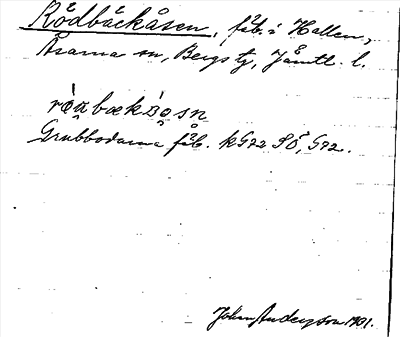 Rödbäckåsen, fäb. i Hallen,
Åsarna sn, Bergs tg, Jämtl. l.
Grubbodarna fäb. kG22 SÖ, G22.
John Anderson 1931.